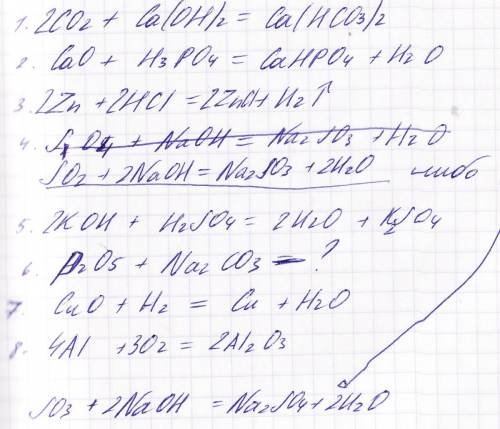 1. 2CO2 + Ca(OH)2 = Ca(HCO3)2
2. CaO + H3PO4 = CaHPO4 + H2O
3. 2Zn + 2HCl = 2ZnCl + H2↑
4. SO4 + NaOH = Na2SO3 + H2O
SO2 + 2NaOH = Na2SO3 + 2H2O либо
5. 2KOH + H2SO4 = 2H2O + K2SO4
6. P2O5 + Na2CO3 = ?
7. CuO + H2 = Cu + H2O
8. 4Al + 3O2 = 2Al2O3
SO3 + 2NaOH = Na2SO4 + 2H2O